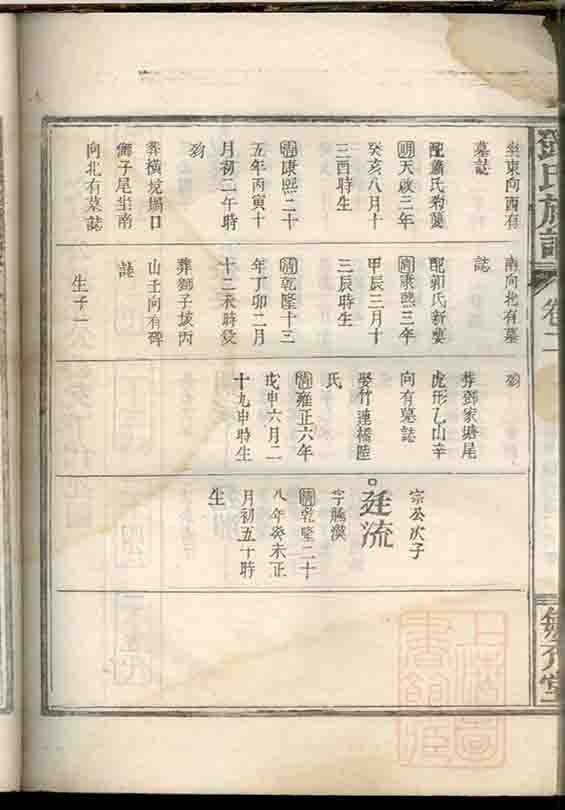 鄧氏族譜
卷二
坐東向西有
墓誌
配蕭氏菊嬰
明天啟三年
癸亥八月十
三酉時生
清康熙二十
五年丙寅十
月初二午時
歿
葬橫境塘口
獅子尾坐南
向北有墓誌
南向北有墓
誌
配郭氏新嬰
清康熙三年
甲辰三月十
三辰時生
清乾隆十三
年丁卯二月
十二未時歿
葬獅子垓丙
山壬向有碑
誌
生子一
歿
葬鄧家塘尾
虎形乙山辛
向有墓誌
娶竹連橋陸
氏
清雍正六年
戊申六月二
十九申時生
宗公次子
廷流
字騰漢
清乾隆二十
八年癸未正
月初五午時
生
上海圖
書館藏